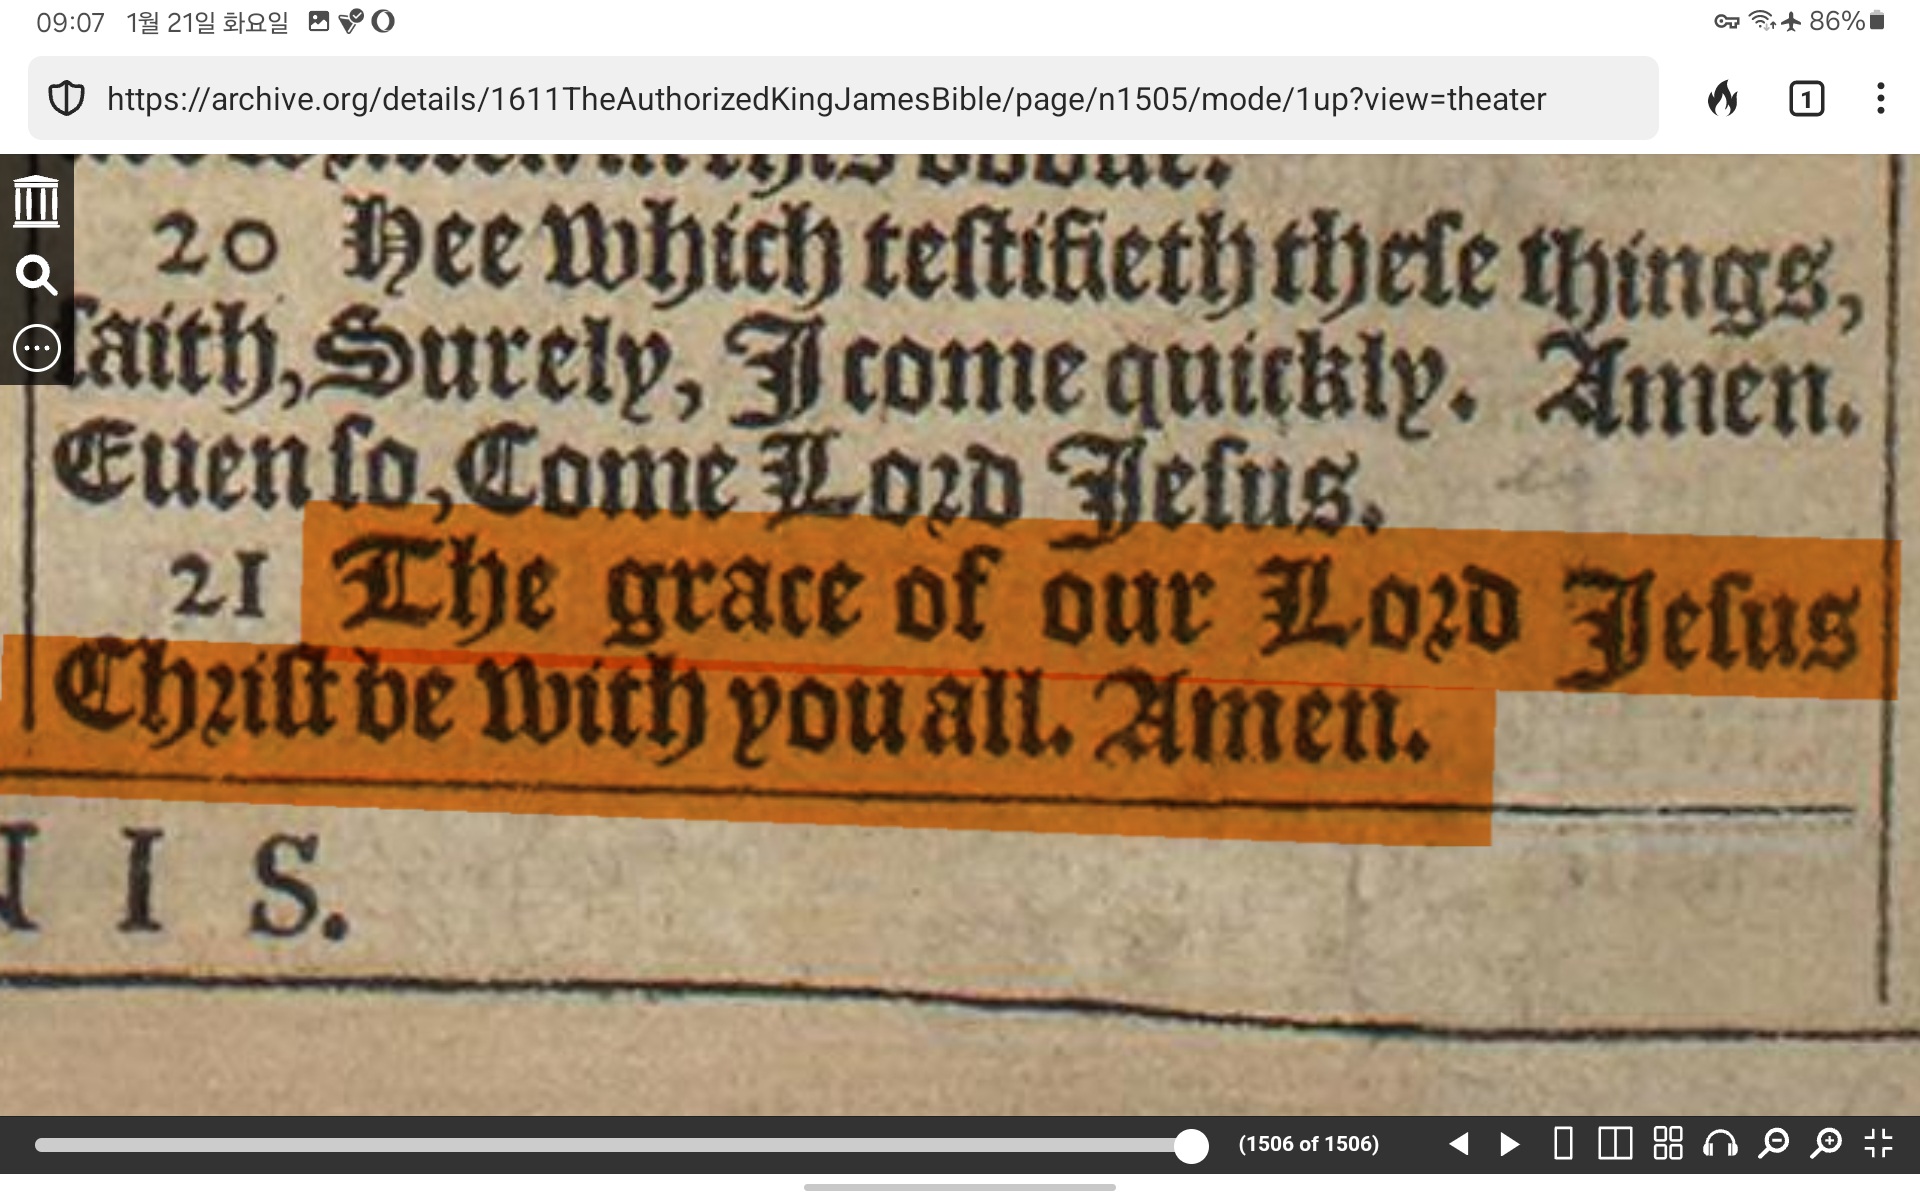 09:07 1월 21일 화요일
86%
https://archive.org/details/1611TheAuthorizedKingJamesBible/page/n1505/mode/1up?view=theater
1
20 Hee which teſtifieth theſe things,
ſaith, Surely, I come quickly. Amen.
Euen ſo, Come Lord Jeſus.
21 The grace of our Lord Jeſus
Chriſt be with you all. Amen.
I S.
(1506 of 1506)